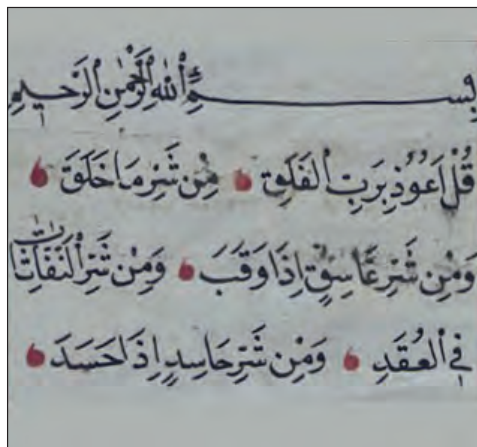 بِسْمِ ٱللهِ ٱلرَّحْمٰنِ ٱلرَّحِيمِ
قُلْ اَعُوذُ بِرَبِّ ٱلْفَلَقِ مِنْ شَرِّ مَا خَلَقَ
وَمِنْ شَرِّ غَاسِقٍ اِذَا وَقَبَ وَمِنْ شَرِّ ٱلنَّفَّاثَاتِ
فِي ٱلْعُقَدِ وَمِنْ شَرِّ حَاسِدٍ اِذَا حَسَدَ